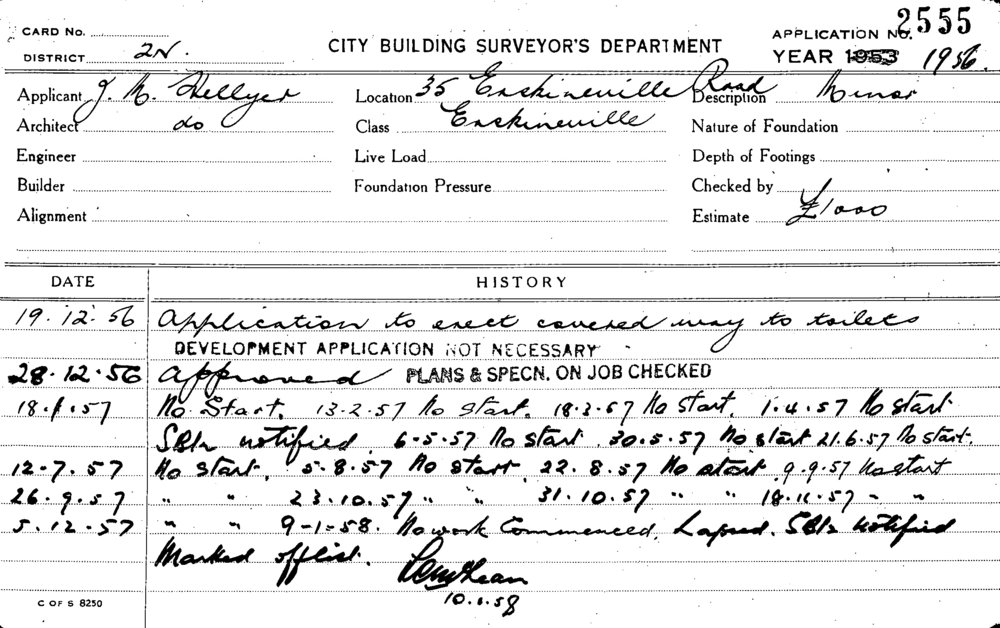 CARD No.
2555
APPLICATION No.
DISTRICT 2N.
CITY BUILDING SURVEYOR'S DEPARTMENT
YEAR 1953 1956.
Applicant J. M. Hellyer Location 35 Erskineville Road Description Minor
Architect do Class Erskineville Nature of Foundation
Engineer Live Load Depth of Footings
Builder Foundation Pressure Checked by
Alignment Estimate £1000
DATE HISTORY
19.12.56 Application to erect covered way to toilets
DEVELOPMENT APPLICATION NOT NECESSARY
28.12.56 Approved PLANS & SPECN. ON JOB CHECKED
18.1.57 No Start. 13-2-57 No start. 18-3-57 No start. 1-4-57 No start
notified 6-5-57 No start 30.5.57 No start 21.6.57 No start.
12-7.57 No start. 5.8.57 No start 22.8.57 No start 9.9.57 No start
26.9.57 " " 23.10.57 " " 31.10.57 " " 18.11.57 " "
5.12.57 " " 9-1-58. No work Commenced. Lapsed. notified
Marked off list.
10.1.58
C OF S 8250